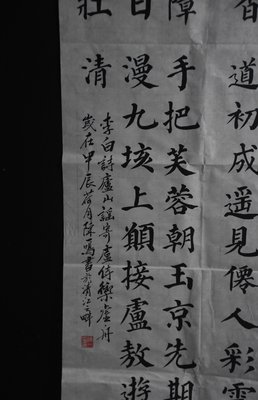 道初成遥見僊人彩雲
手把芙蓉朝玉京先期
漫九垓上願接盧敖遊
清
李白詩廬山謠寄盧侍御虛舟
歲在甲辰荷月陳鳴書於江畔